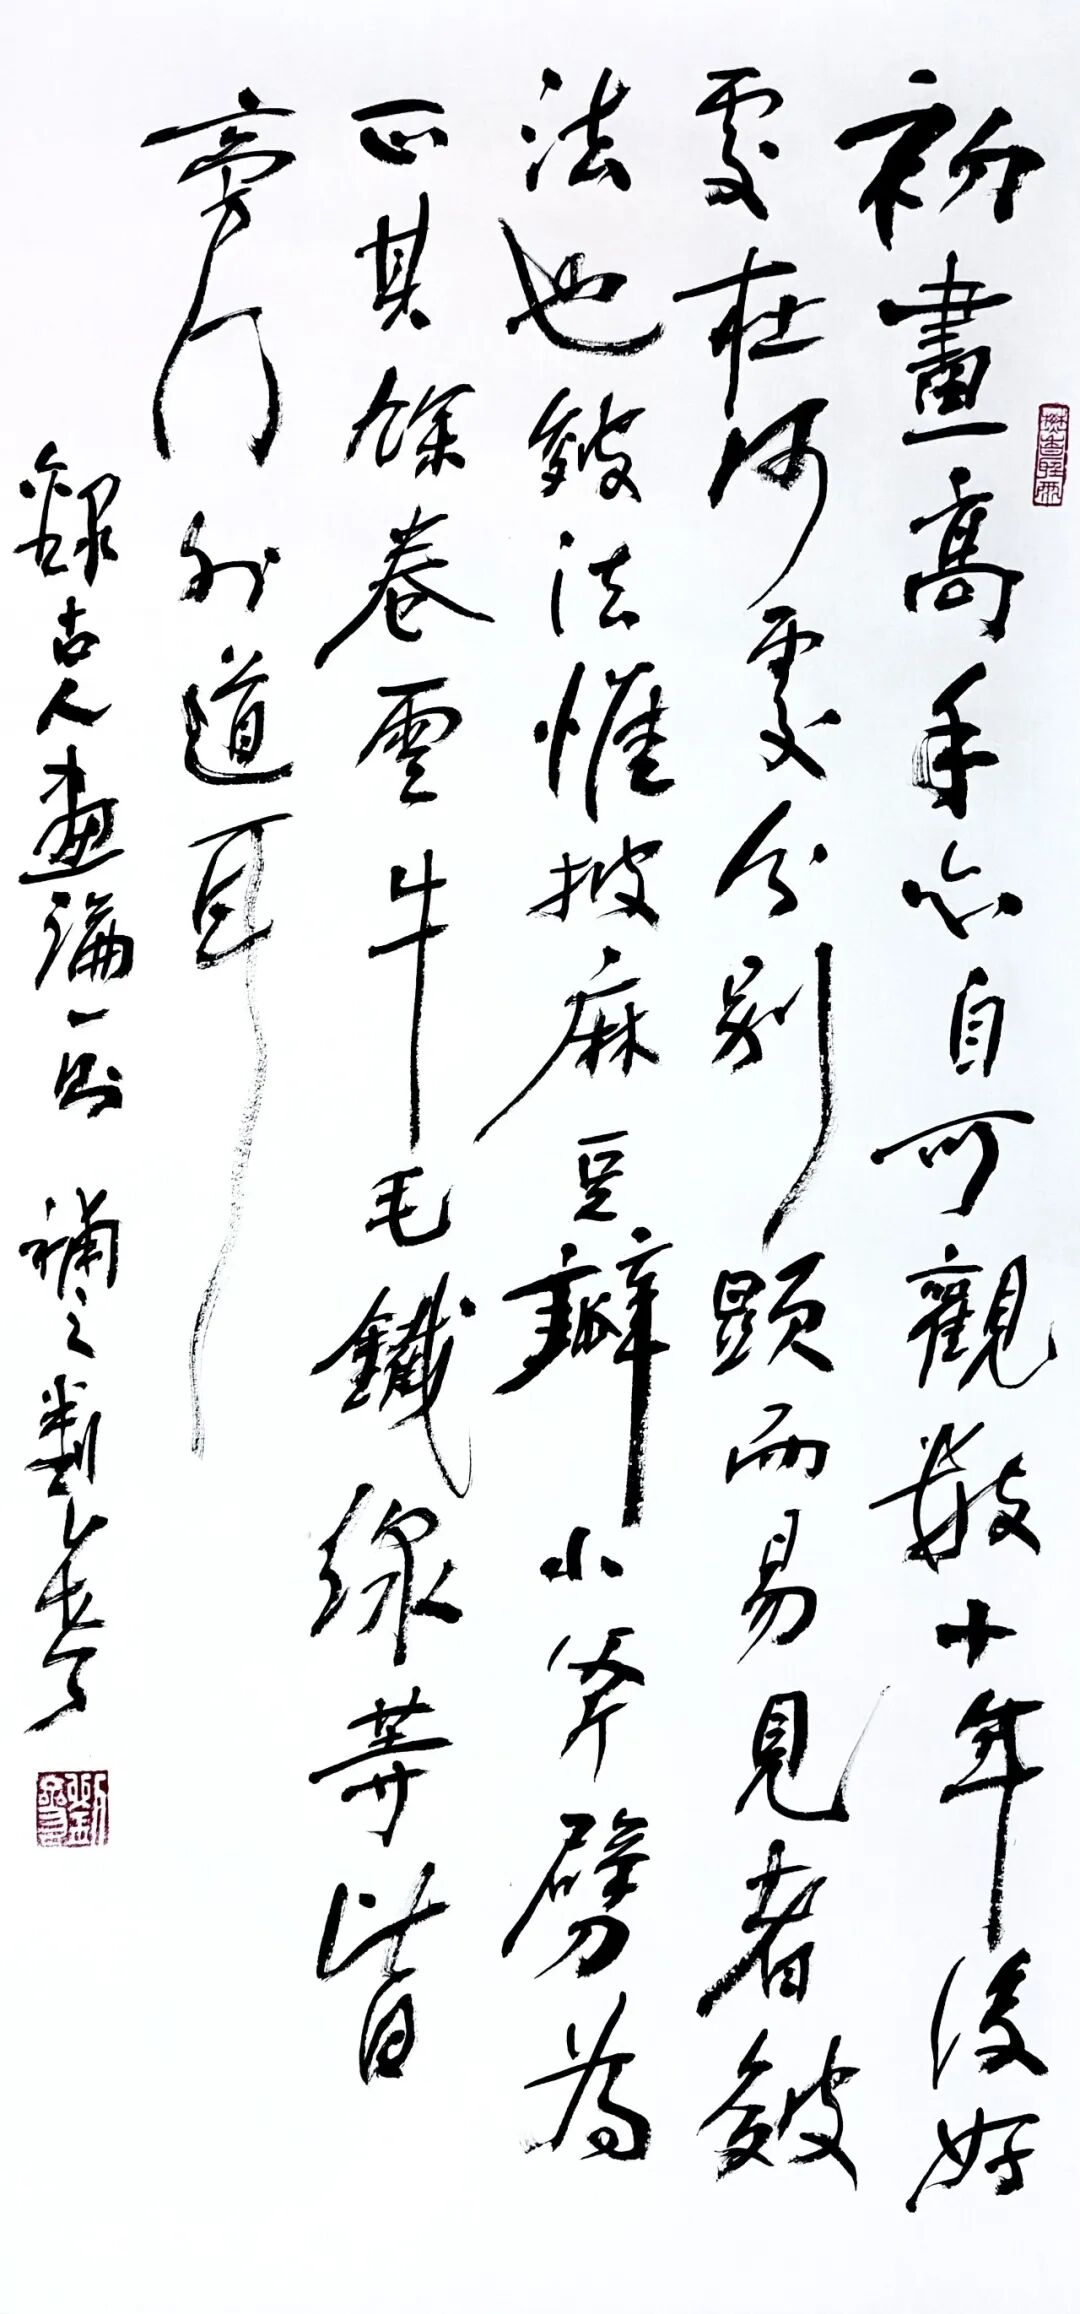 初畫高手亦自可觀數十年後好
處在何處分別顯而易見者皴
法也皴法惟披麻豆瓣小斧劈為
正其餘卷雲牛毛鐵線等皆
旁門外道耳
錄古人畫論一則 補之劉